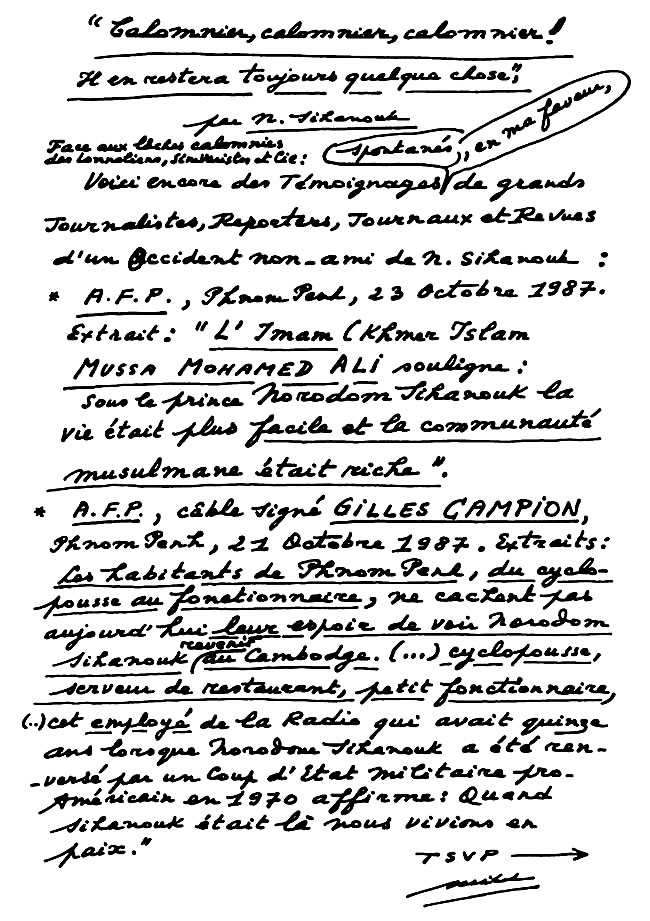 "Calomnier, calomnier, calomnier!
Il en restera toujours quelque chose",
par N. Sihanouk
Face aux lâches calomnies
des Lonnoliens, Sirikistes et Cie:
spontanés, en ma faveur,
Voici encore des Témoignages de grands
Journalistes, Reporters, Journaux et Revues
d'un Occident non-ami de N. Sihanouk :
* A.F.P., Phnom Penh, 23 Octobre 1987.
Extrait: "L'Imam (Khmer Islam
MUSSA MOHAMED ALI souligne:
Sous le prince Norodom Sihanouk la
vie était plus facile et la communauté
musulmane était riche".
* A.F.P., câble signé GILLES CAMPION,
Phnom Penh, 21 Octobre 1987. Extraits:
Les habitants de Phnom Penh, du cyclo-
pousse au fonctionnaire, ne cachent pas
aujourd'hui leur espoir de voir Norodom
revenir
Sihanouk au Cambodge. (...) cyclopousse,
serveur de restaurant, petit fonctionnaire,
(..) cet employé de la Radio qui avait quinze
ans lorsque Norodom Sihanouk a été ren-
-versé par un Coup d'Etat militaire pro-
Américain en 1970 affirme: Quand
Sihanouk était là nous vivions en
paix."
TSVP →